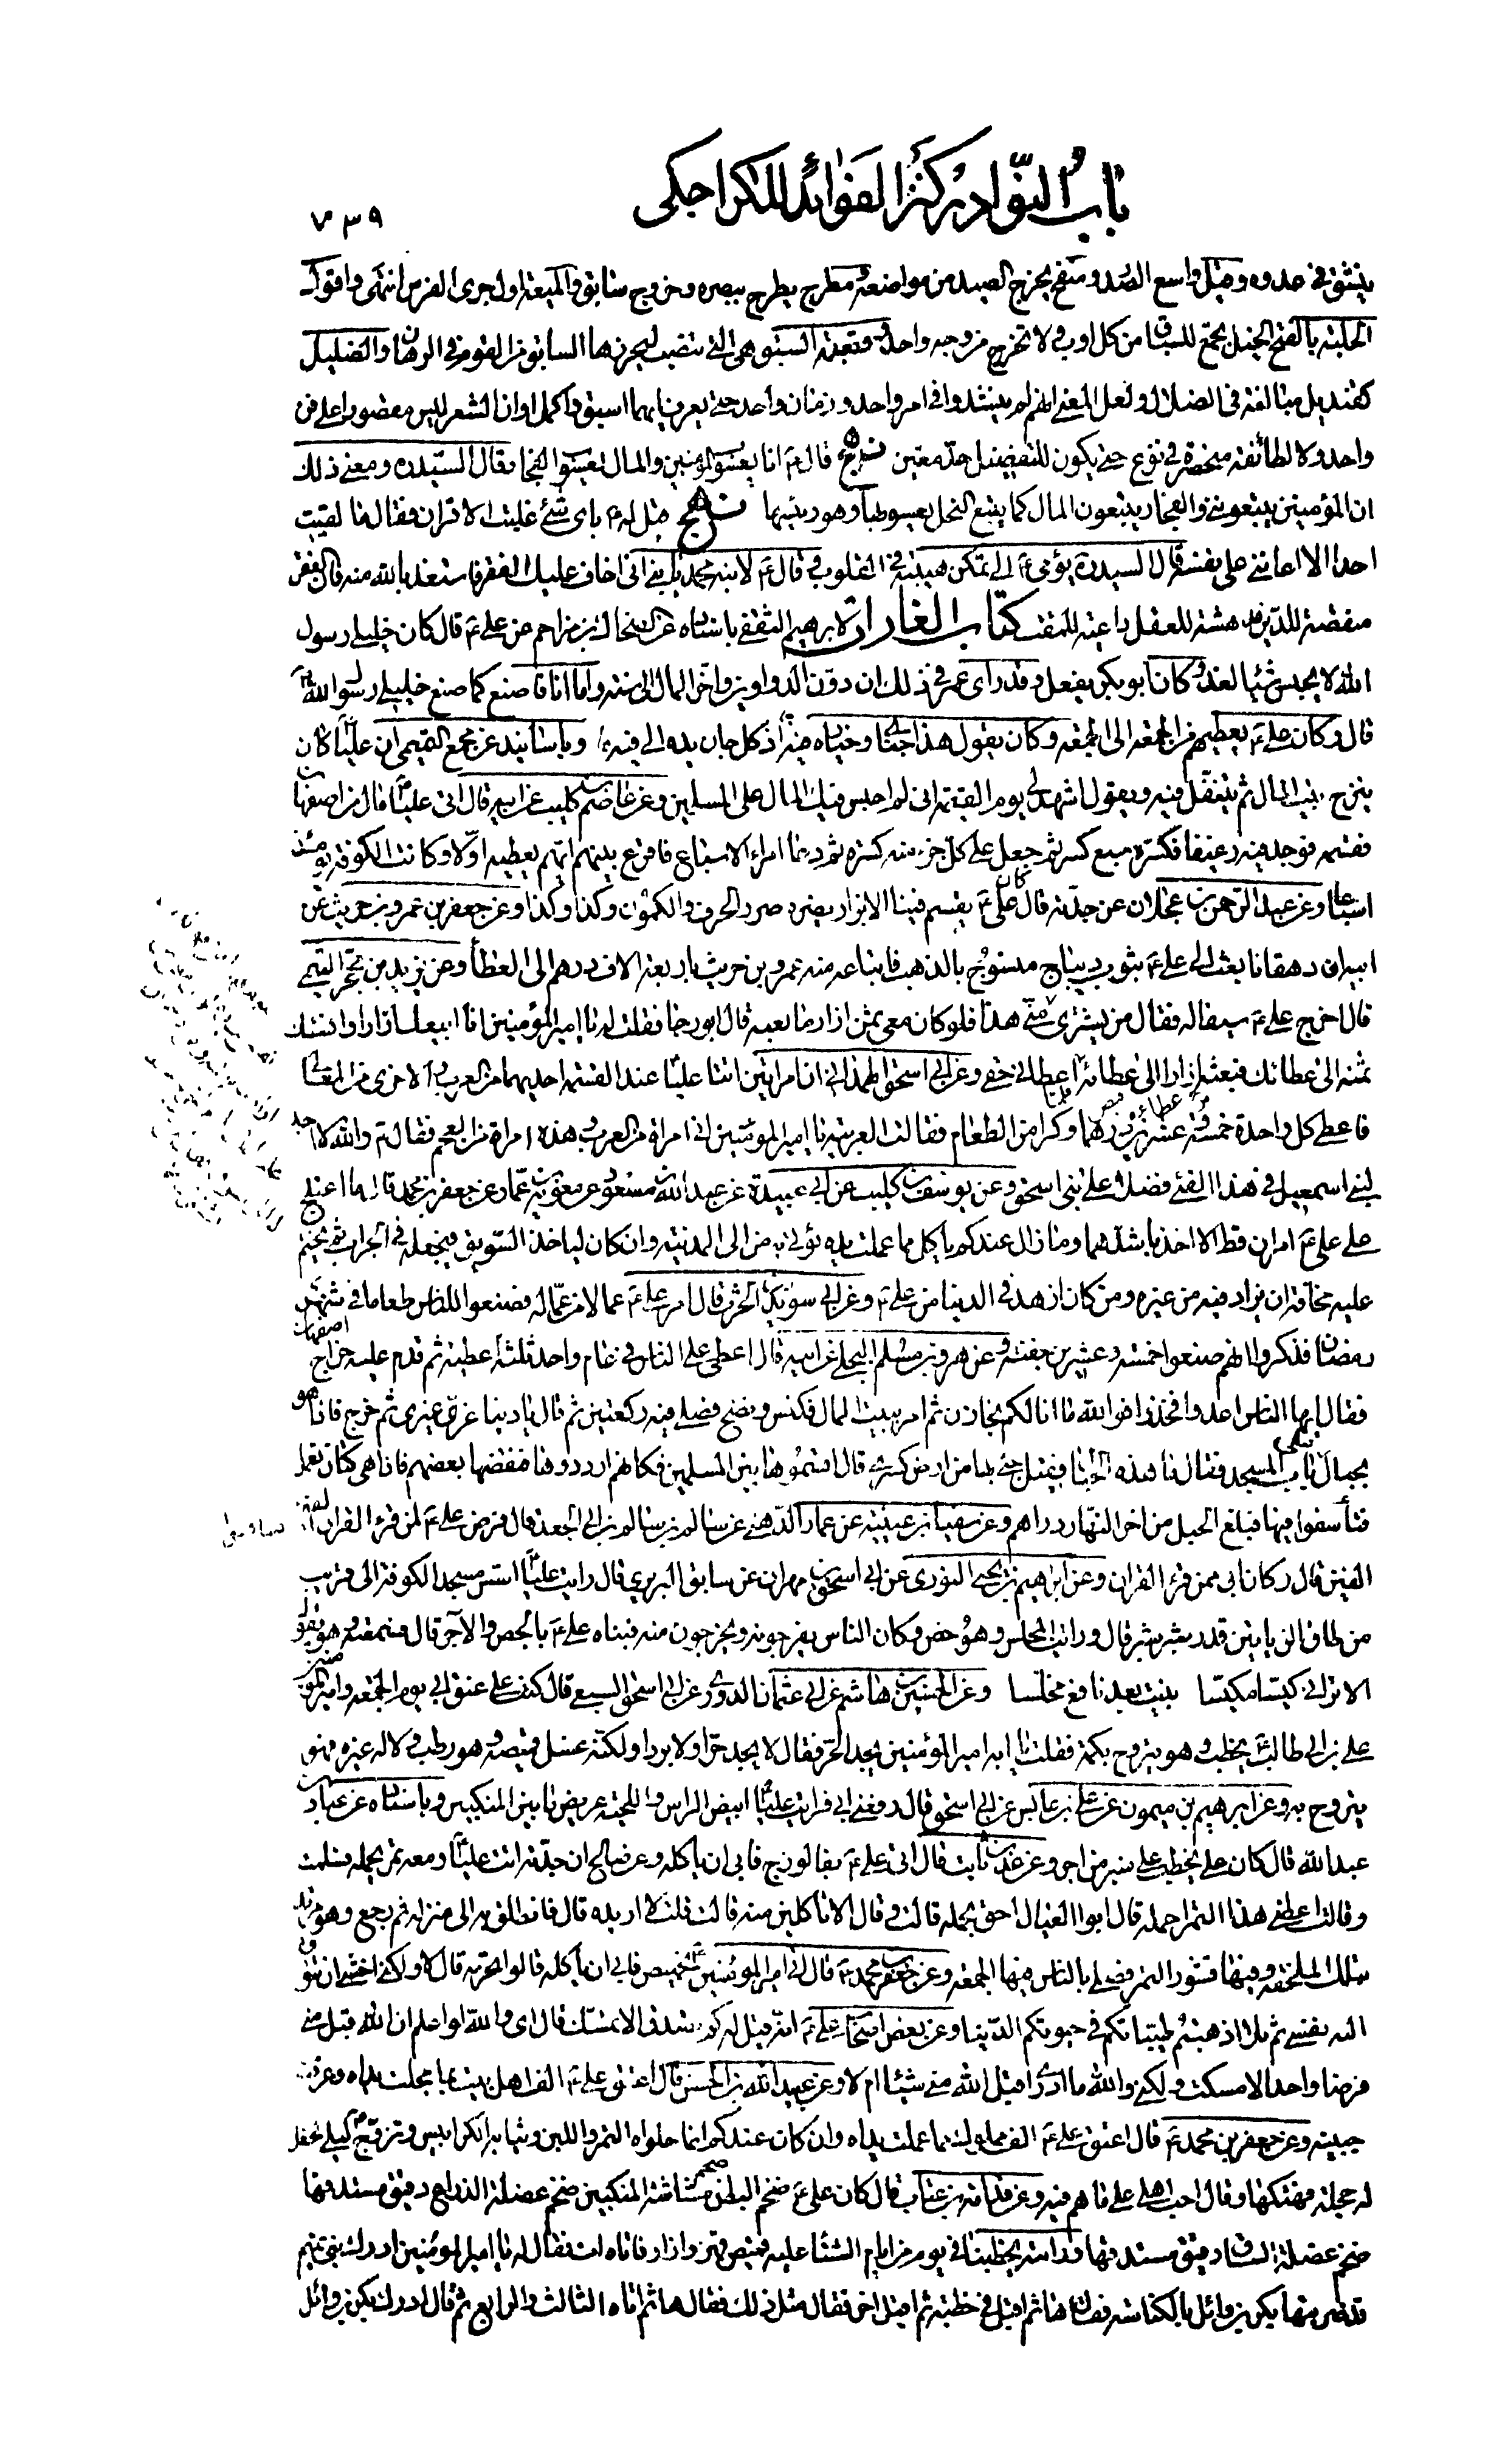 باب النوادر كنز الفوائد للكراجكي
٧٣٩
في عدوه وقيل واسع الصدر ومنفح يخرج الصيد من مواضعه ومطرح يطرح ببصره وخروج سابق والميعة اول جري الفرس انتهى واقول
الحلبة بالفتح الخيل تجمع للسباق من كل اوب لا تخرج من وجه واحد وقصبة السبق هي التي تنصب ليحرزها السابق من القوم في الرهان والضليل
كقنديل مبالغة في الضلال ولعل المعنى انهم لم ينشدوا في امر واحد وزمان واحد حتى يعرف ايهما اسبق واكمل او ان الشعر ليس مقصورا على فن
واحد ولا لطائفة منحصرة في نوع حتى يكون للتفضيل حد معين نهج قال ع انا يعسوب المؤمنين والمال يعسوب الفجار قال السيد ره ومعنى ذلك
ان المؤمنين يتبعونني والفجار يتبعون المال كما يتبع النحل يعسوبها وهو رئيسها نهج قيل له ع باي شئ غلبت الاقران فقال ما لقيت
احدا الا اعانني على نفسه قال السيد ره يومي ع الى تمكن هيبته في القلوب وقال ع لابنه محمد يا بني اني اخاف عليك الفقر فاستعذ بالله منه فان الفقر
منقصة للدين مدهشة للعقل داعية للمقت كتاب الغارات لابرهيم الثقفي باسناده عن الضحاك بن مزاحم عن علي ع قال كان خليلي رسول
الله لا يحبس شيئا لغد وكان ابو بكر يفعل وقد راى عمر في ذلك ان دون الدواوين واخر المال الى سنة واما انا فاصنع كما صنع خليلي رسول الله
قال وكان علي ع يعطيهم من الجمعة الى الجمعة وكان يقول هذا جناي وخياره فيه اذ كل جان يده الى فيه وباسانيد عن مجمع التيمي ان عليا كان
ينزح بيت المال ثم يتنفل فيه ويقول اشهد لي يوم القيمة اني لم احبس فيك المال على المسلمين وعن عاصم بن كليب عن ابيه قال اتى عليا مال من اصفهان
فقسمه فوجد فيه رغيفا فكسره سبع كسر ثم جعل على كل جزء منه كسرة ثم دعا امراء الاسباع فاقرع بينهم ايهم يعطيه اولا وكانت الكوفة يومئذ
اسباعا وعن عبد الرحمن بن عجلان عن جدته قال كان علي ع يقسم فينا الابزار يصره صرر الحرف والكمون وكذا وكذا وعن جعفر بن عمرو بن حريث عن
ابيه ان دهقانا بعث الى علي ع بثوب ديباج منسوج بالذهب فابتاعه منه عمرو بن حريث باربعة الاف درهم الى العطا وعن يزيد بن محجن التيمي
قال اخرج علي ع سيفا له فقال من يشتري مني هذا فلو كان معي ثمن ازار ما بعته قال ابو رجا فقلت له يا امير المؤمنين انا ابيعك ازارا وانسئك
ثمنه الى عطائك فبعته ازارا الى عطائه فلما قبض عطائه اعطاني حقي وعن ابي اسحق الهمداني ان امراتين اتتا عليا عند القسمة احديهما من العرب والاخرى من الموالي
فاعطى كل واحدة خمسة وعشرين درهما وكرا من الطعام فقالت العربية يا امير المؤمنين اني امراة من العرب وهذه امراة من العجم فقال ع والله لا اجد
لبني اسمعيل في هذا الفئ فضلا على بني اسحق وعن يوسف بن كليب عن ابي عبيدة عن عبد الله بن مسعود عن معوية بن عمار عن جعفر بن محمد قال ما اعتلج
على علي ع امران قط الا اخذ باشدهما وما زال عندكم ياكل مما عملت يده يؤتى به من المدينة وان كان لياخذ السويق فيجعله في الجراب ثم يختم
عليه مخافة ان يزاد فيه من غيره ومن كان ازهد في الدنيا من علي ع وعن ابي سويد بن الحرث قال امر علي ع عمالا من عماله فصنعوا للناس طعاما في شهر
رمضان فذكروا انهم صنعوا خمسة وعشرين جفنة وعن هرون بن مسلم البجلي عن ابيه قال اعطى علي الناس في عام واحد ثلثة اعطية ثم قدم عليه خراج اصفهان
فقال ايها الناس اغدوا فخذوا فوالله ما انا لكم بخازن ثم امر ببيت المال فكنس ونضح فصلى فيه ركعتين ثم قال يا دنيا غري غيري ثم خرج فاذا هو
بحبال على باب المسجد فقال ما هذه الحبال فقيل جئ بها من ارض كسرى قال اقسموها بين المسلمين فكانهم ازدروها فنقضها بعضهم فاذا هي كتان تعمل
فتاسفوا فيها فبلغ الحبل من اخر النهار دراهم وعن سفيان بن عيينة عن عمار الدهني عن سالم بن ابي الجعد قال فرض علي ع لمن قرء القران الفين
الفين قال وكان ابي ممن قرء القران وعن ابراهيم بن يحيى الثوري عن ابي اسحق بن مهران عن سابق البربري قال رايت عليا اسس مسجد الكوفة الى قريب
من طاق الزياتين قدر شبر شبر قال ورايت المخيس وهو خص وكان الناس يفرجونه ويخرجون منه فبناه علي ع بالجص والاجر قال فسمعته وهو يقول
الا تراني كيسا مكيسا بنيت بعد نافع مخيسا وعن الحسين بن هاشم عن ابي عثمان الدوري عن ابي اسحق السبيعي قال كنت على عنق ابي يوم الجمعة وامير المؤمنين
علي بن ابي طالب يخطب وهو يتروح بكمه فقلت يا ابه امير المؤمنين يجد الحر فقال لا يجد حرا ولا بردا ولكنه غسل قميصه وهو رطب ولا له غيره فهو
يتروح به وعن ابرهيم بن ميمون عن علي بن عابس عن ابي اسحق قال رفعني ابي فرايت عليا ابيض الراس واللحية عريض ما بين المنكبين وباسناده عن عباد بن
عبد الله قال كان علي يخطب على منبر من اجر وعن عدي بن ثابت قال اتي علي ع بفالوذج فابى ان ياكله وعن صالح ان جدته اتت عليا ومعه تمر يحمله فسلمت
وقالت اعطني هذا التمر احمله قال ابو العيال احق بحمله قالت وقال الا تاكلين منه قالت قلت لا اريده قال فانطلق به الى منزله ثم رجع وهو مرتد
بتلك الملحفة وفيها قشور التمر فصلى بالناس فيها الجمعة وعن جعفر بن محمد ع قال اتي امير المؤمنين بخبيص فابى ان ياكله قالوا تحرمه قال لا ولكني اخشى ان تتوق
اليه نفسي ثم تلا اذهبتم طيباتكم في حيوتكم الدنيا وعن بعض اصحاب علي ع انه قيل له كم تصدق الا تمسك قال اي والله لو اعلم ان الله قبل مني
فرضا واحدا لامسكت ولكني والله ما ادري اقبل الله مني شيئا ام لا وعن عبد الله بن الحسن قال اعتق علي ع الف اهل بيت بما مجلت يداه وعرق
جبينه وعن جعفر بن محمد ع قال اعتق علي ع الف مملوك مما عملت يداه وان كان عندكم انما حلواه التمر واللبن وثيابه الكرابيس وتزوج ع ليلى فجعل
له حجلة فهتكها وقال احب اهلي على ما هم فيه وعن قدامة بن عتاب قال كان علي ع ضخم البطن ضخم مشاشة المنكبين ضخم عضلة الذراع دقيق مستدقها
ضخم عضلة الساق دقيق مستدقها ورايته يخطبنا في يوم من ايام الشتا عليه قميص قهز وازار فاتاه ات فقال له يا امير المؤمنين ادرك بني تميم
قد ضربتها بكر بن وائل بالكناسة فقال ها ثم اقبل في خطبته ثم اقبل اخر فقال مثل ذلك فقال ها ثم اتاه الثالث والرابع ثم قال ادرك بكر بن وائل